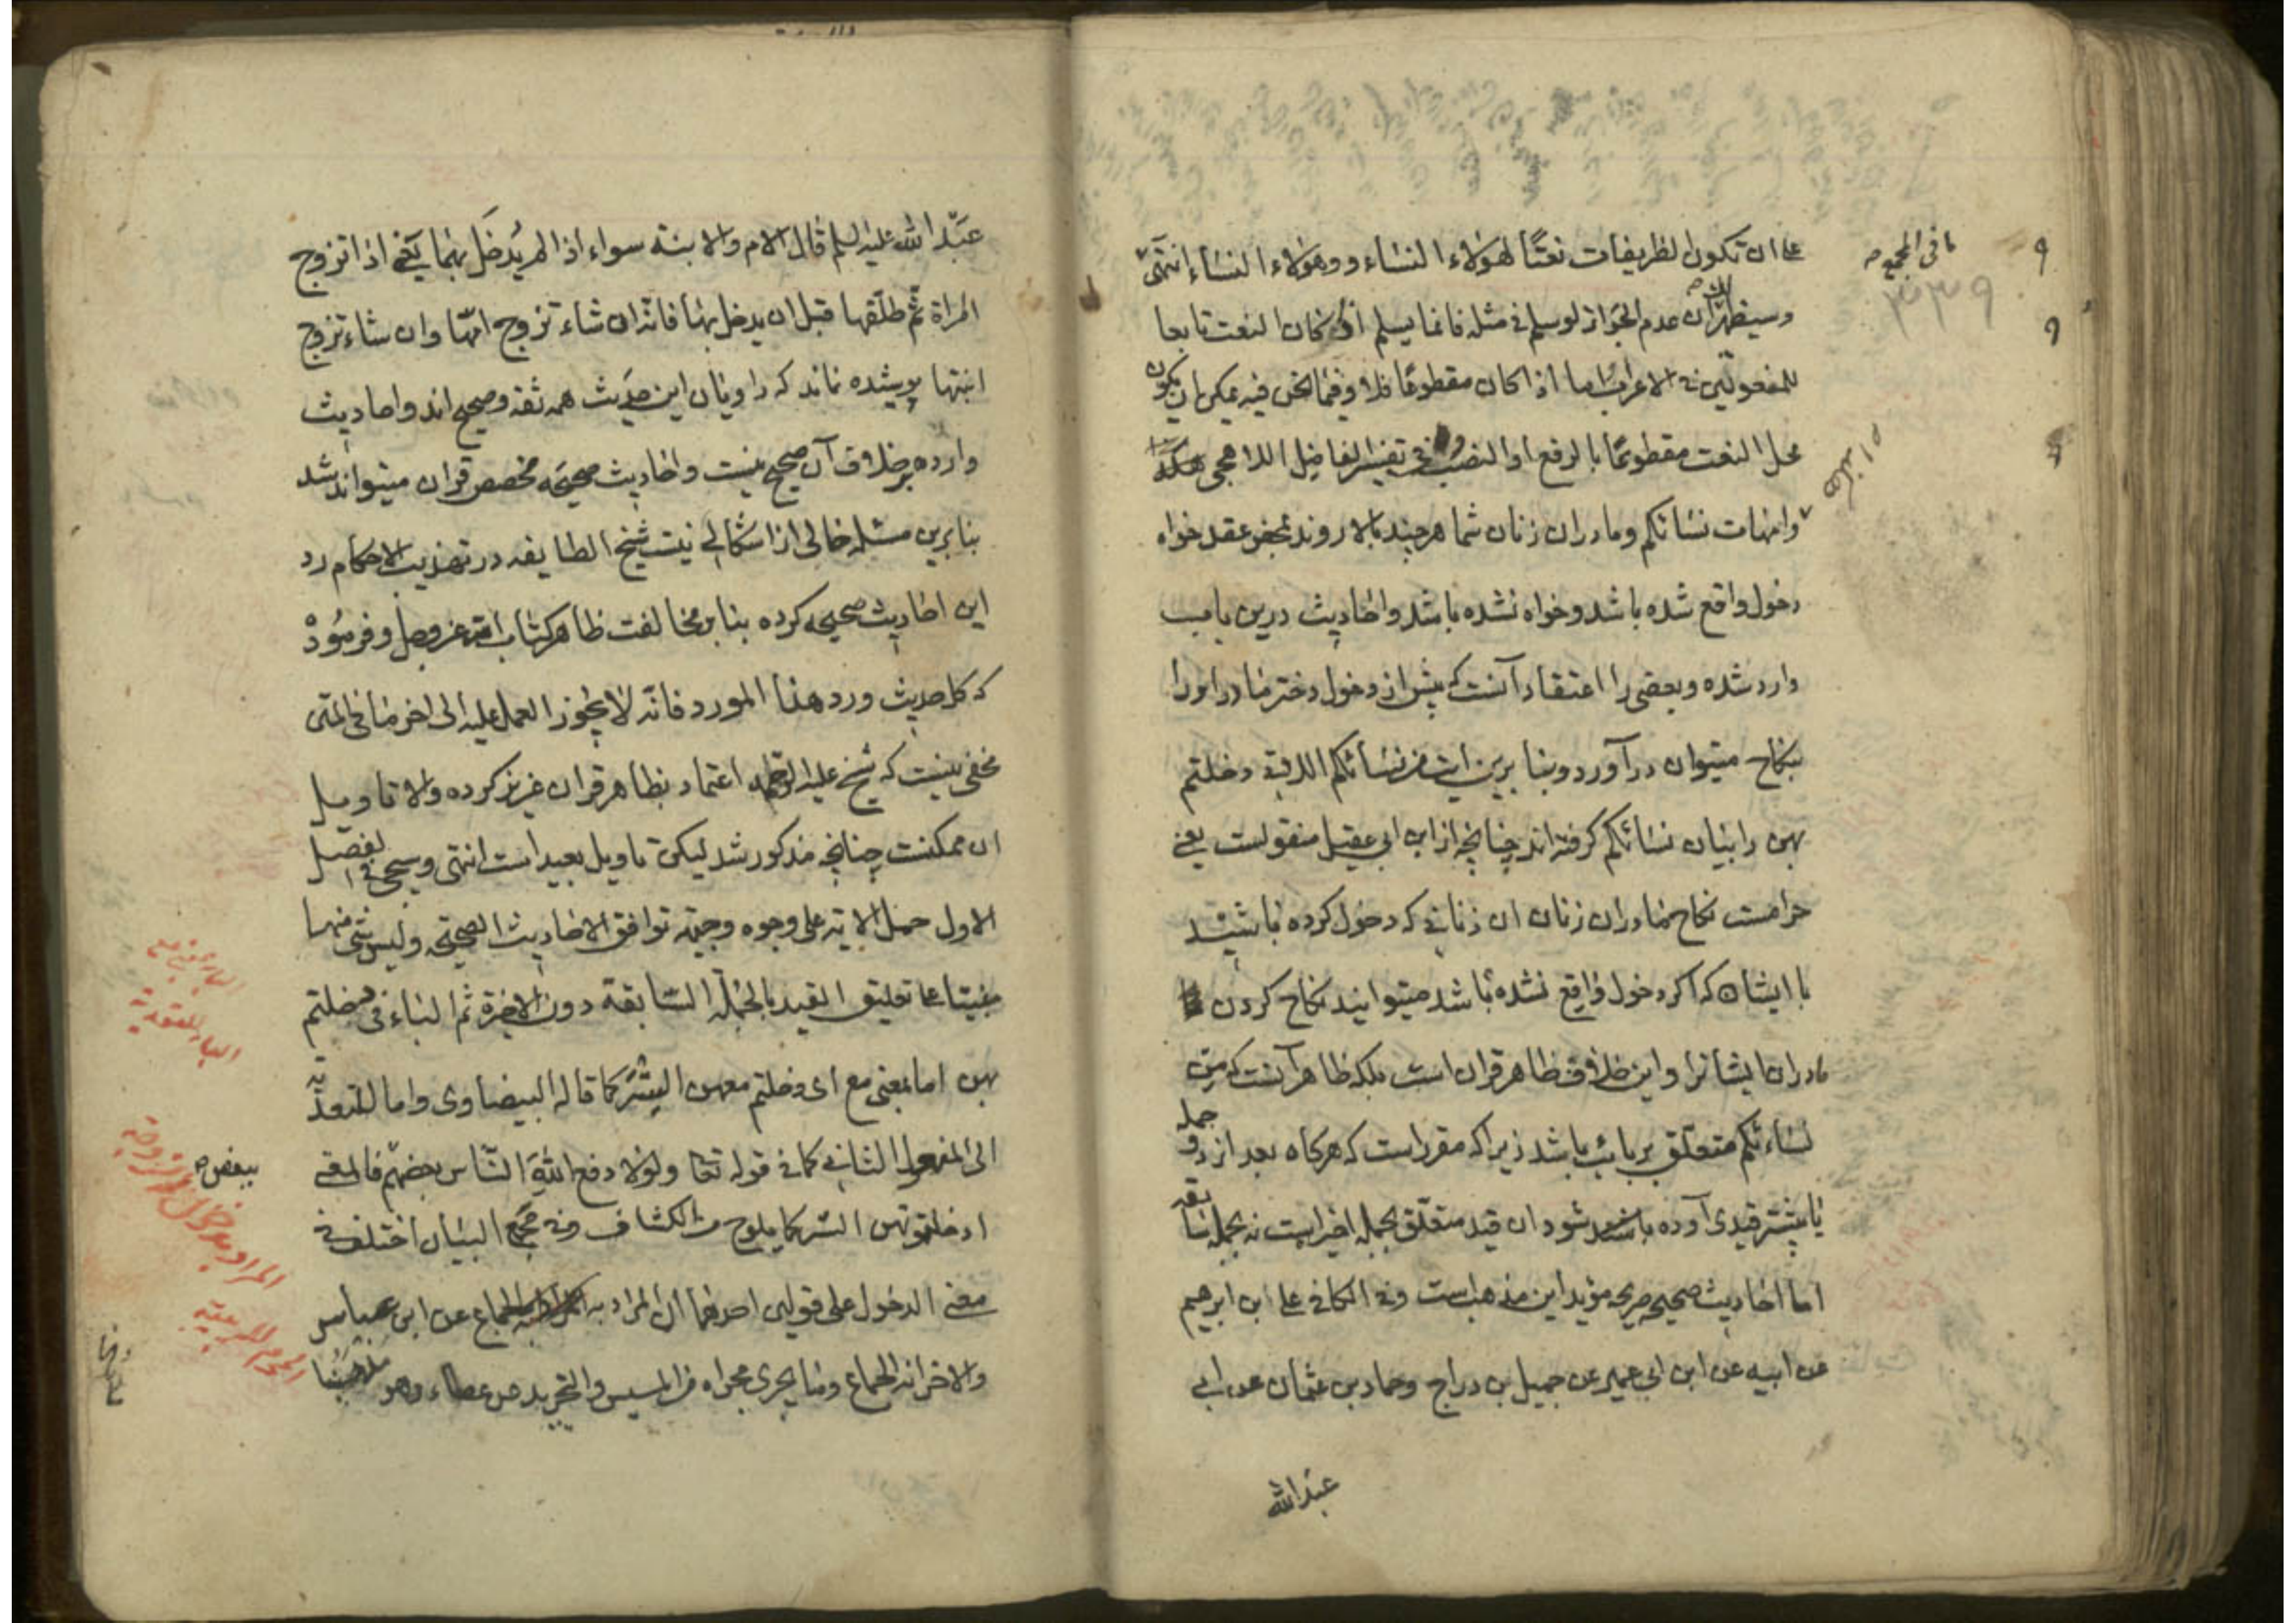 على ان تكون الظريفات نعتًا لهؤلاء النساء و وهولاء النساء انتهى
ما فى المجمع صح
۳۳۹
وسيظهر لك ان عدم الجواز لو سلم فى مثله فانما يسلم اذا كان النعت تابعا
للمفعولين فى الاعراب اما اذا كان مقطوعًا فلا وفيما نحن فيه يمكن ان يكون
محل النعت مقطوعًا بالرفع او النصب وفى تفسير الفاضل اللاهجى
وامهات نسائكم ومادران زنان شما هر چند بالا روند بمحض عقد خواه
دخول واقع شده باشد وخواه نشده باشد واحاديث درين باب
وارد شده وبعضى را اعتقاد آنست كه پيش از دخول دختر مادر او را
بنكاح ميتوان درآورد وبنا برين اين من نسائكم اللاتى دخلتم
بهن را بيان نسائكم گرفته اند چنانچه از ابن ابى عقيل منقولست يعنى
حرامست نكاح مادران زنان ان زنانى كه دخول كرده باشيد
با ايشان كه اكر دخول واقع نشده باشد ميتوانيد نكاح كردن
مادران ايشانرا واين خلاف ظاهر قران است بلكه ظاهر آنست كه من
نساءئكم متعلق بربائب باشد زيرا كه مقرر است كه هرگاه بعد از دو جمله
يا بيشتر قيدى آورده باشند شود ان قيد متعلق بجمله اخير است نه بجمله سابقه
اما احاديث صحيحه صريحه مؤيد اين مذهب است وفى الكافى على ابن ابرهيم
عن ابيه عن ابن ابى عمير عن جميل بن دراج وحماد بن عثمان عن ابى
عبد الله
عبد الله عليه السلم قال الام والابنة سواء اذا لم يدخل بهما يعنى اذا تزوج
المراة ثم طلّقها قبل ان يدخل بها فانه ان شاء تزوج امّها وان شاء تزوج
ابنتها پوشيده نماند كه راويان اين حديث همه ثقه وصحيح اند واحاديث
وارده بر خلاف آن صحيح نيست واحاديث صحيحه مخصص قران ميتواند شد
بنا برين مسئله خالى از اشكالى نيست شيخ الطايفه در تهذيب الاحكام رد
اين احاديث صحيحه كرده بنا بر مخالفت ظاهر كتاب الله عز وجل وفرموده
كه كل حديث ورد هذا المورد فانه لا يجوز العمل عليه الى اخر ما فى المتن
مخفى نيست كه شيخ عليه الرحمه اعتماد بظاهر قران عزيز كرده والا تاويل
ان ممكنست چنانچه مذكور شد ليكن تاويل بعيد است انتهى وسيجئ فى الفصل
الاول حمل الاية على وجوه وجيهة توافق الاحاديث الصحيحه وليس شئ منها
مبنيًا على تعليق القيد بالجملة السابقة دون الاخيرة ثم الباء فى دخلتم
بهن اما بمعنى مع اى دخلتم معهن الستر كما قاله البيضاوى واما للتعدية
الى المفعول الثانى كما فى قوله تعا ولولا دفع الله الناس بعضهم فالمعنى
ببعض صح
ادخلتموهن الستر كما يلوح من الكشاف وفى مجمع البيان اختلف فى
معنى الدخول على قولين احدهما ان المراد به الجماع عن ابن عباس
والاخر انه الجماع وما يجرى مجراه من المسيس والتجريد عن عطاء وهو مذهبنا